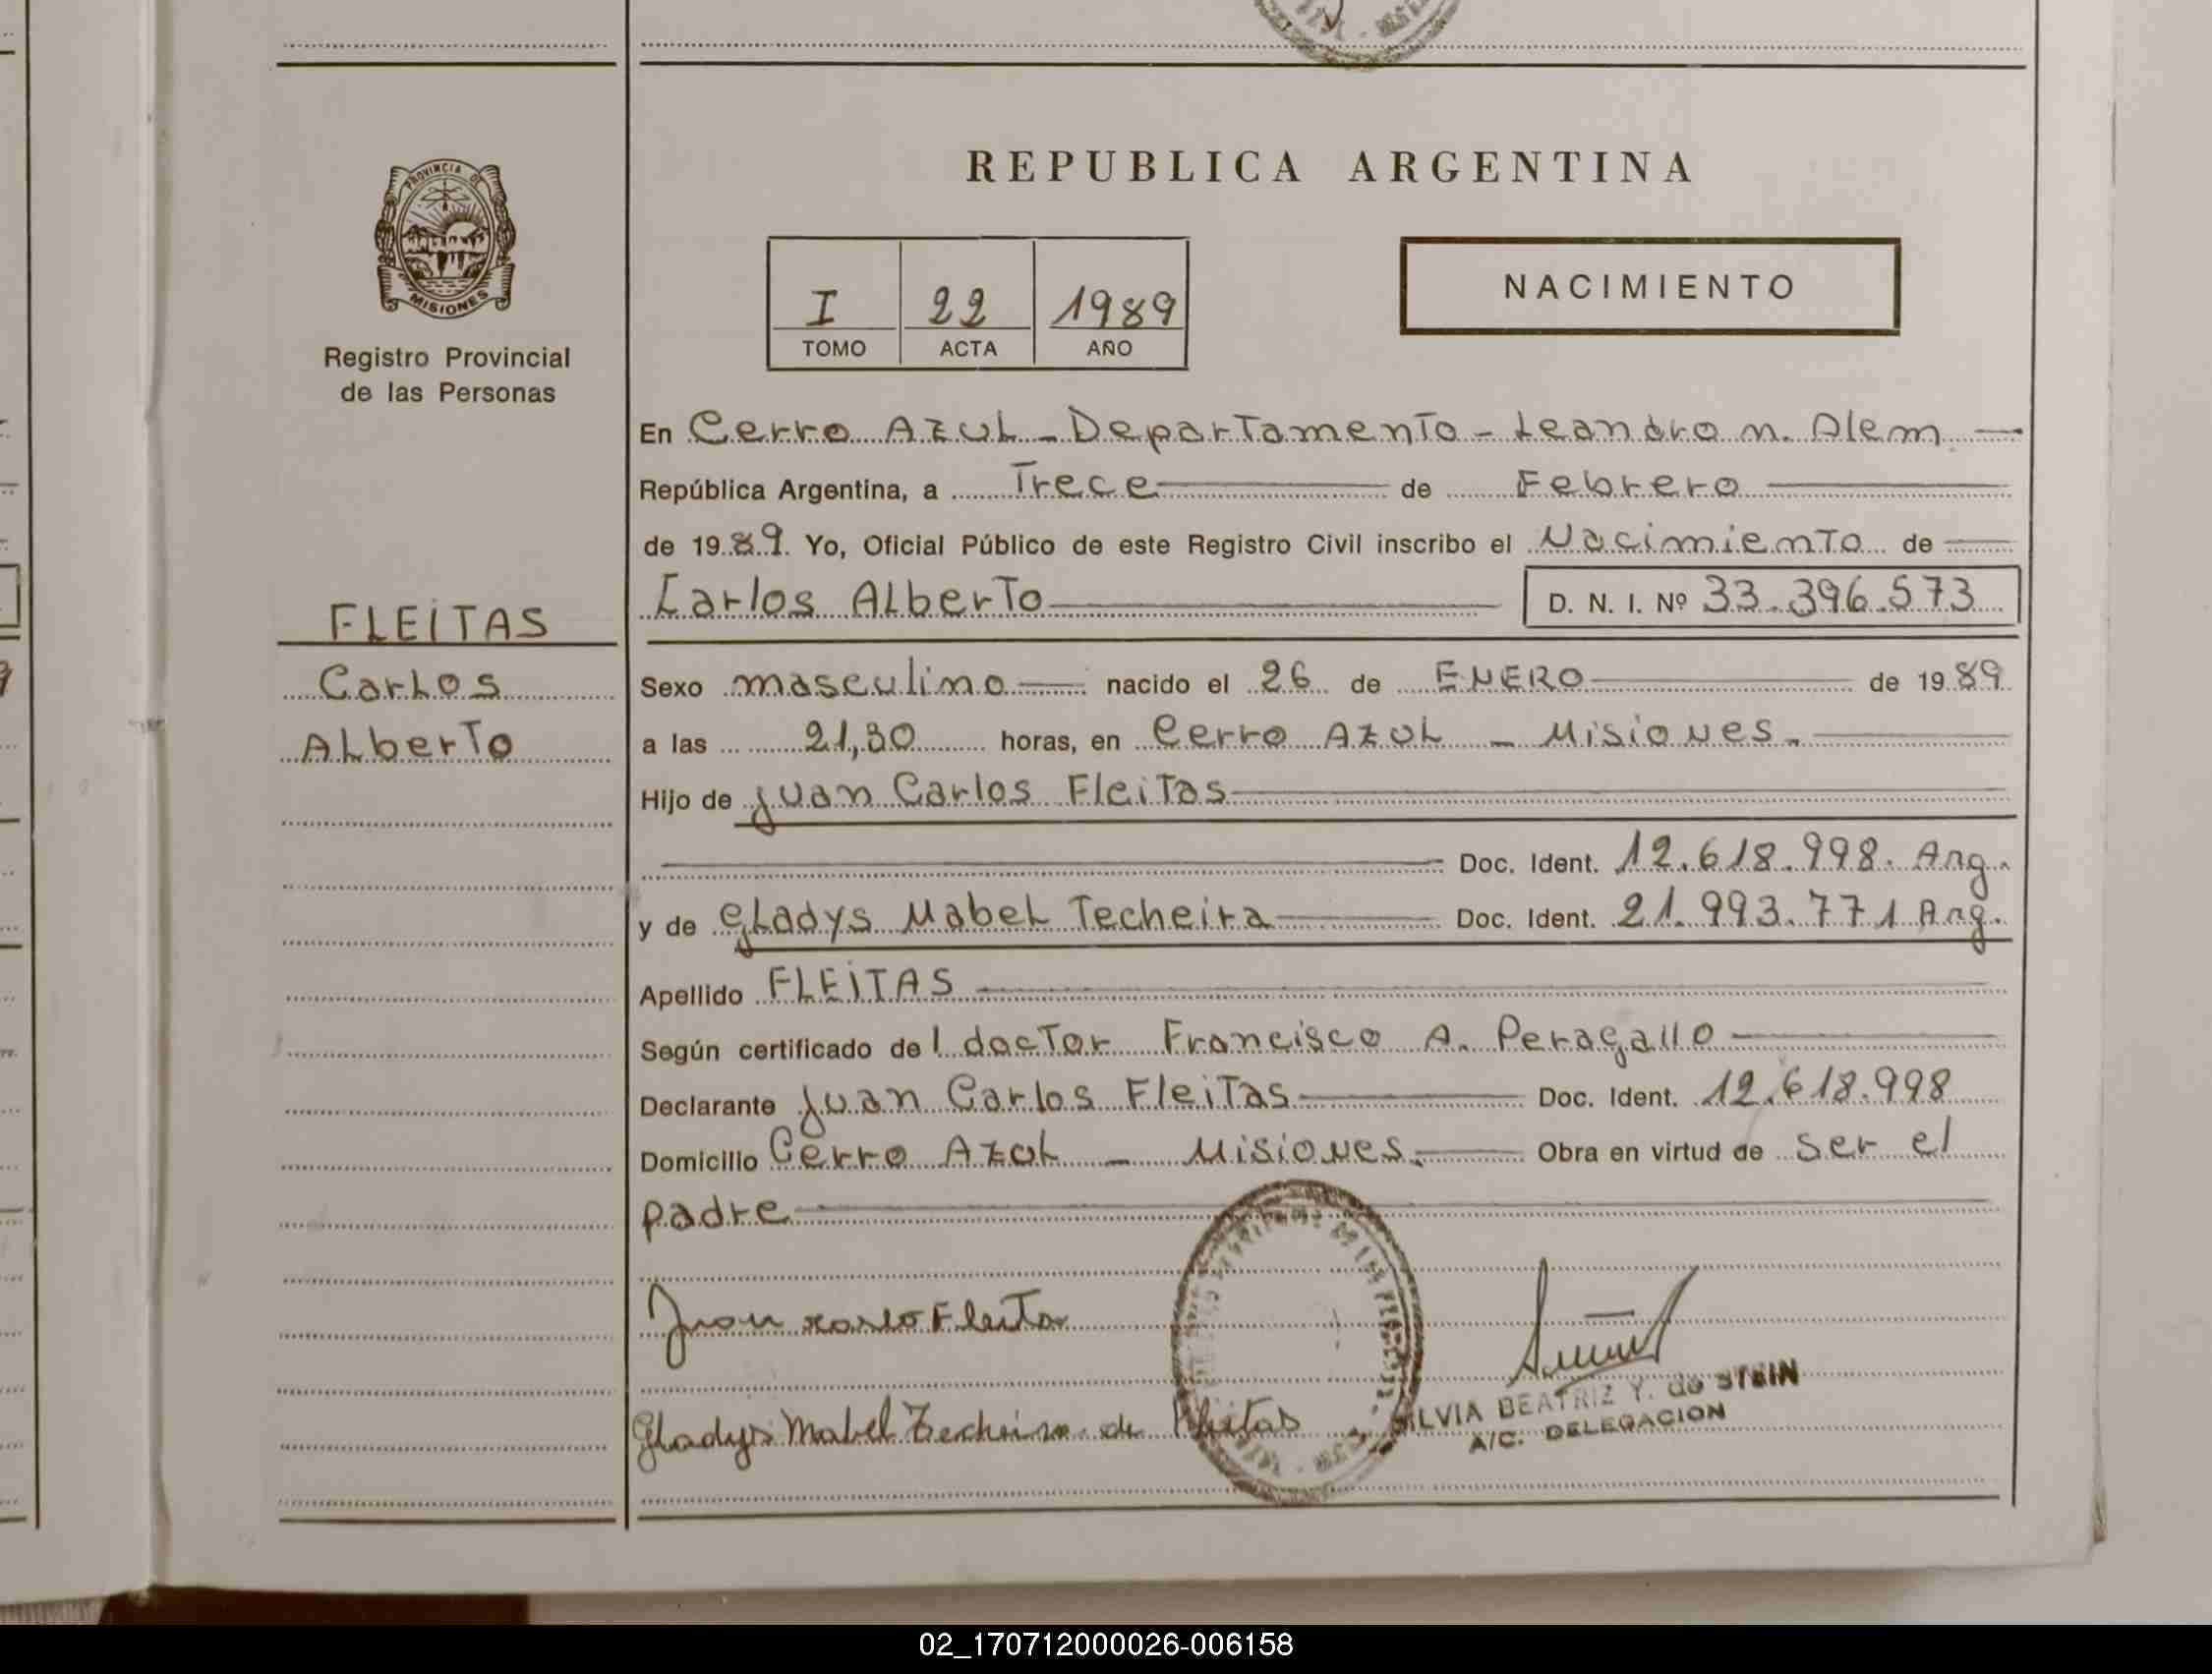 REPUBLICA ARGENTINA
PROVINCIA DE
MISIONES
Registro Provincial
de las Personas
I 22 1989
TOMO ACTA AÑO
NACIMIENTO
En Cerro Azul - Departamento - Leandro n. Alem -
República Argentina, a Trece de Febrero
de 1989. Yo, Oficial Público de este Registro Civil inscribo el Nacimiento de
Carlos Alberto D. N. I. Nº 33.396.573
FLEITAS
Carlos
Alberto
Sexo masculino nacido el 26 de ENERO de 1989
a las 21,30 horas, en Cerro Azul - Misiones.
Hijo de Juan Carlos Fleitas
Doc. Ident. 12.618.998. Arg.
y de Gladys Mabel Techeira Doc. Ident. 21.993.771 Arg.
Apellido FLEITAS
Según certificado del doctor Francisco A. Peragallo
Declarante Juan Carlos Fleitas Doc. Ident. 12.618.998
Domicilio Cerro Azul - Misiones. Obra en virtud de ser el
padre
Juan Carlo Fleita
Gladys Mabel Techeira de Fleitas
SILVIA BEATRIZ Y. de STEIN
A/C. DELEGACION
02_170712000026-006158